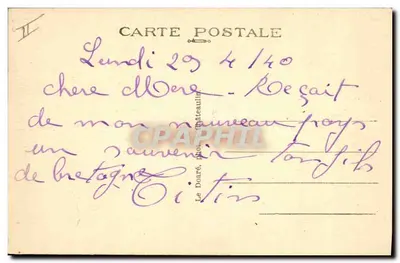 II
CARTE POSTALE
Lundi 29 4/40
chere Mere - Reçait
de mon nouveau pays
un souvenir Ton fils
de bretagne Titins
Le Doaré, phot., Châteaulin
CPAPHIL